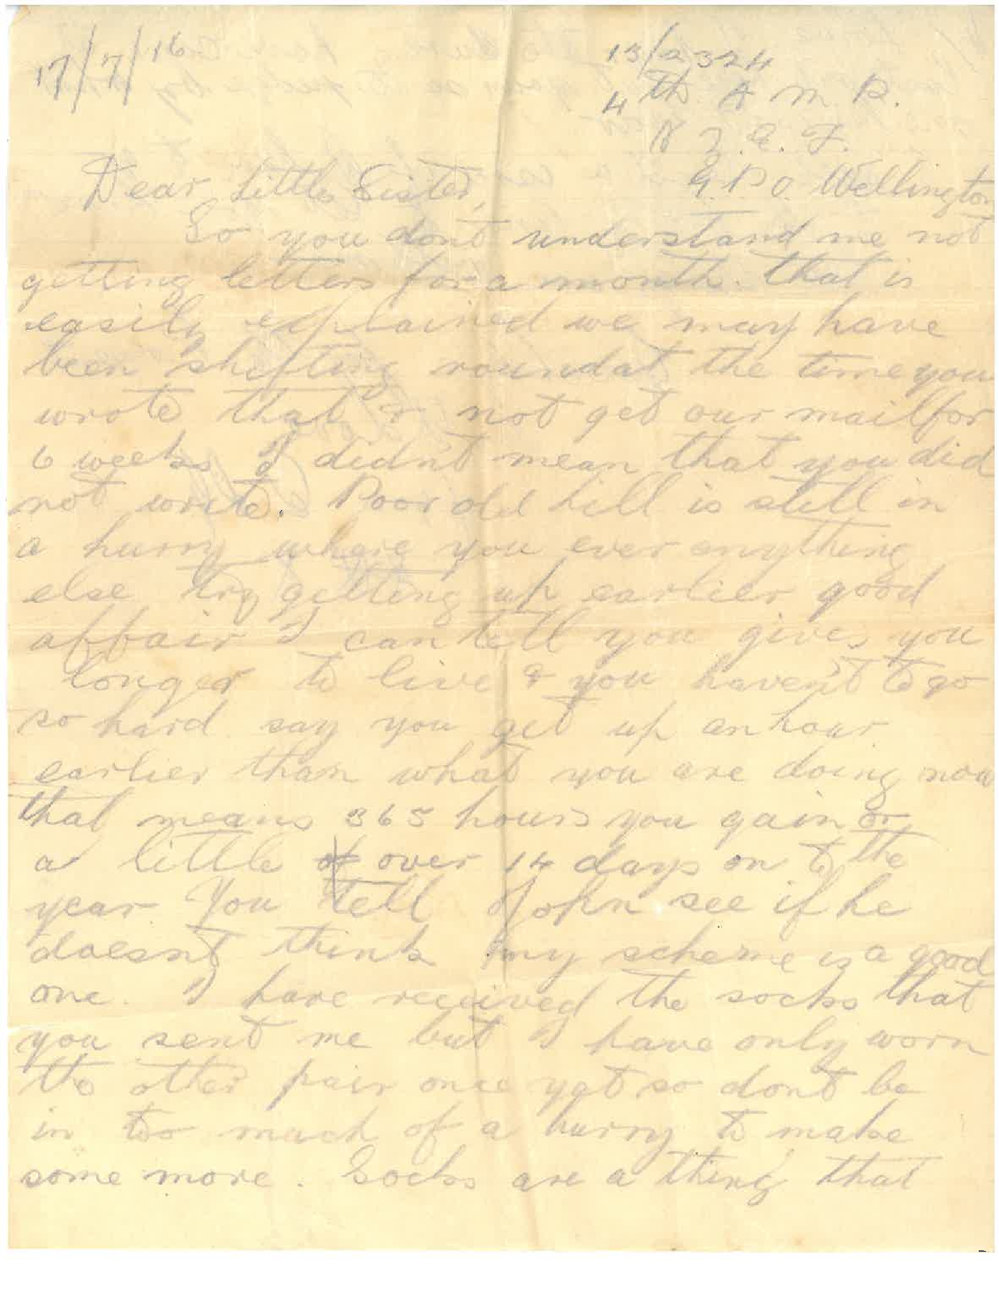 17/7/16
13/2324
4th A. M. R.
N Z. E. F.
G. P. O. Wellington
Dear Little Sister,
So you dont understand me not
getting letters for a month. that is
easily explained we may have
been shifting round at the time you
wrote that & not get our mail for
6 weeks I didn't mean that you did
not write. Poor old Lill is still in
a hurry where you ever anything
else try getting up earlier good
affair I can tell you gives you
longer to live & you haven't to go
so hard say you get up an hour
earlier than what you are doing now
that means 365 hours you gain or
a little over 14 days on to the
year. You tell John see if he
doesnt think my scheme is a good
one. I have received the socks that
you sent me but I have only worn
the other pair once yet so dont be
in too much of a hurry to make
some more. Socks are a thing that